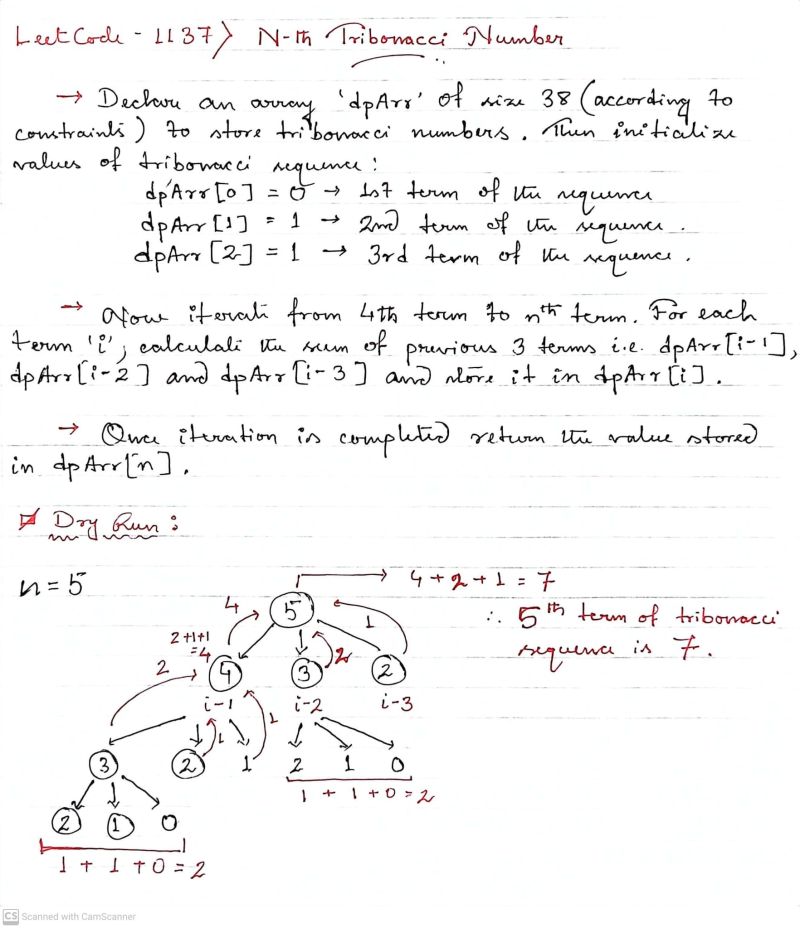 LeetCode - 1137> N-th Tribonacci Number
→ Declare an array 'dpArr' of size 38 (according to
constraints) to store tribonacci numbers. Then initialize
values of tribonacci sequence:
dpArr[0] = 0 → 1st term of the sequence
dpArr[1] = 1 → 2nd term of the sequence.
dpArr[2] = 1 → 3rd term of the sequence.
→ Now iterate from 4th term to nth term. For each
term 'i', calculate the sum of previous 3 terms i.e. dpArr[i-1],
dpArr[i-2] and dpArr[i-3] and store it in dpArr[i].
→ Once iteration is completed return the value stored
in dpArr[n].
Dry Run:
n = 5
4 + 2 + 1 = 7
∴ 5th term of tribonacci
sequence is 7.
4 5 1
2+1+1
=4
2 4 3 2 2
i-1 i-2 i-3
1 1
3 2 1 2 1 0
1 + 1 + 0 = 2
2 1 0
1 + 1 + 0 = 2
CS Scanned with CamScanner